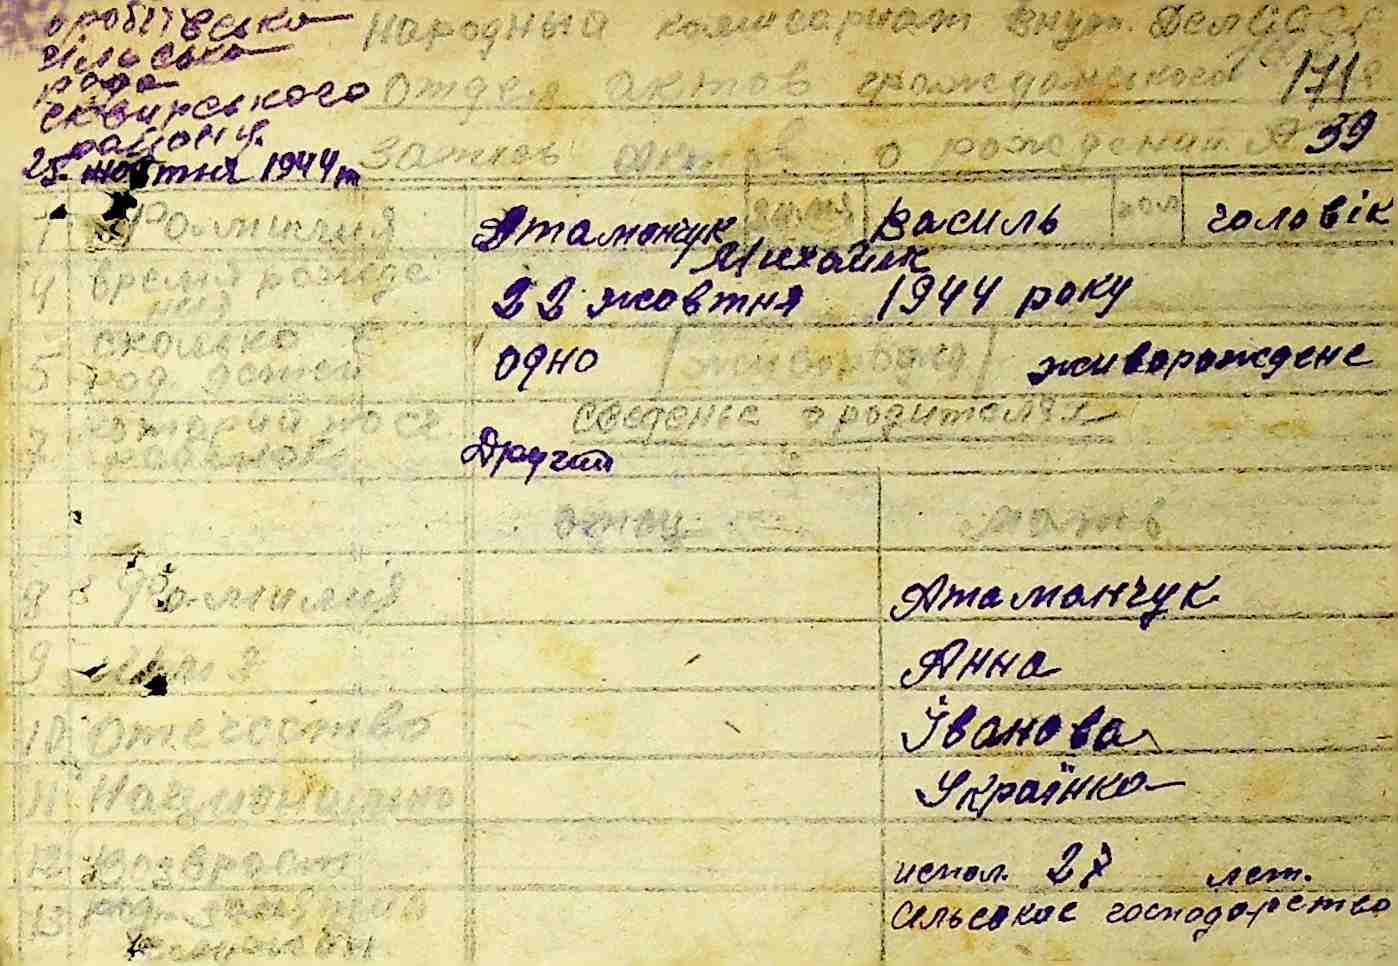 сільська
рада
сквирського
району.
25 жовтня 1944 р
Народный комисариат Внут. Дел
отдел актов гражданского 171
Запись актов о рождении № 39
1 Фамилия Атаманчук имя Василь пол чоловік
Михайлк
4 время рожде
ния 22 жовтня 1944 року
5 сколько
род. детей одно живорожд живорождене
7 который по сч Сведенье о родителях
Другий
отец мать
8 Фамилия Атаманчук
9 Имя Анна
10 Отечество Іванова
11 Национално Українка
12 Возвраст испол. 27 лет.
13 род занятия сільское господарство